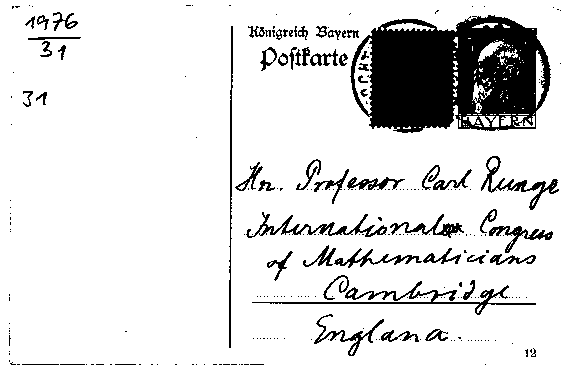 1976
31
31
Königreich Bayern
Postkarte
BAYERN
Hrn. Professor Carl Runge
International Congress
of Mathematicians
Cambridge
England.
12